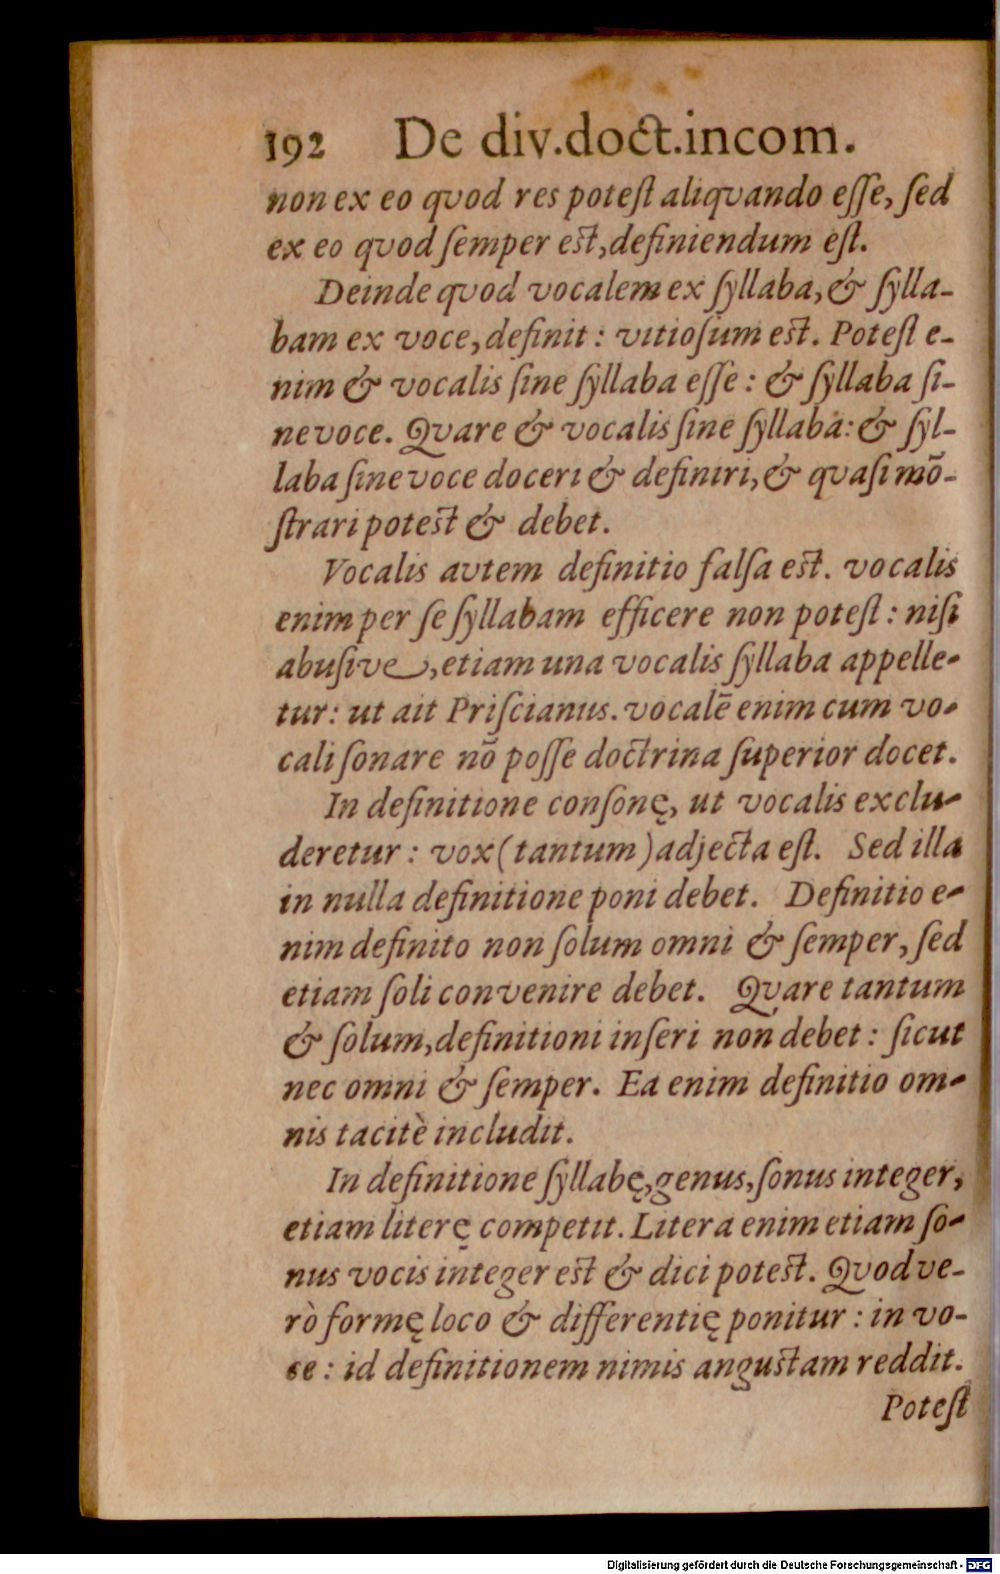 192 De div.doct.incom.
non ex eo qvod res poteſt aliqvando eſſe, ſed
ex eo qvod ſemper eſt, definiendum eſt.
Deinde qvod vocalem ex ſyllaba, & ſylla-
bam ex voce, definit : vitioſum eſt. Poteſt e-
nim & vocalis ſine ſyllaba eſſe : & ſyllaba ſi-
ne voce. Qvare & vocalis ſine ſyllaba: & ſyl-
laba ſine voce doceri & definiri, & qvaſi mõ-
ſtrari poteſt & debet.
Vocalis avtem definitio falſa eſt. vocalis
enim per ſe ſyllabam efficere non poteſt : niſi
abuſive, etiam una vocalis ſyllaba appelle-
tur: ut ait Priſcianus. vocalẽ enim cum vo-
cali ſonare nõ poſſe doctrina ſuperior docet.
In definitione conſonę, ut vocalis exclu-
deretur : vox (tantum) adjecta eſt. Sed illa
in nulla definitione poni debet. Definitio e-
nim definito non ſolum omni & ſemper, ſed
etiam ſoli convenire debet. Qvare tantum
& ſolum, definitioni inſeri non debet : ſicut
nec omni & ſemper. Ea enim definitio om-
nis tacitè includit.
In definitione ſyllabę, genus, ſonus integer,
etiam literę competit. Litera enim etiam ſo-
nus vocis integer eſt & dici poteſt. Qvod ve-
rò formę loco & differentię ponitur : in vo-
ce : id definitionem nimis anguſtam reddit.
Poteſt
Digitalisierung gefördert durch die Deutsche Forschungsgemeinschaft - DFG